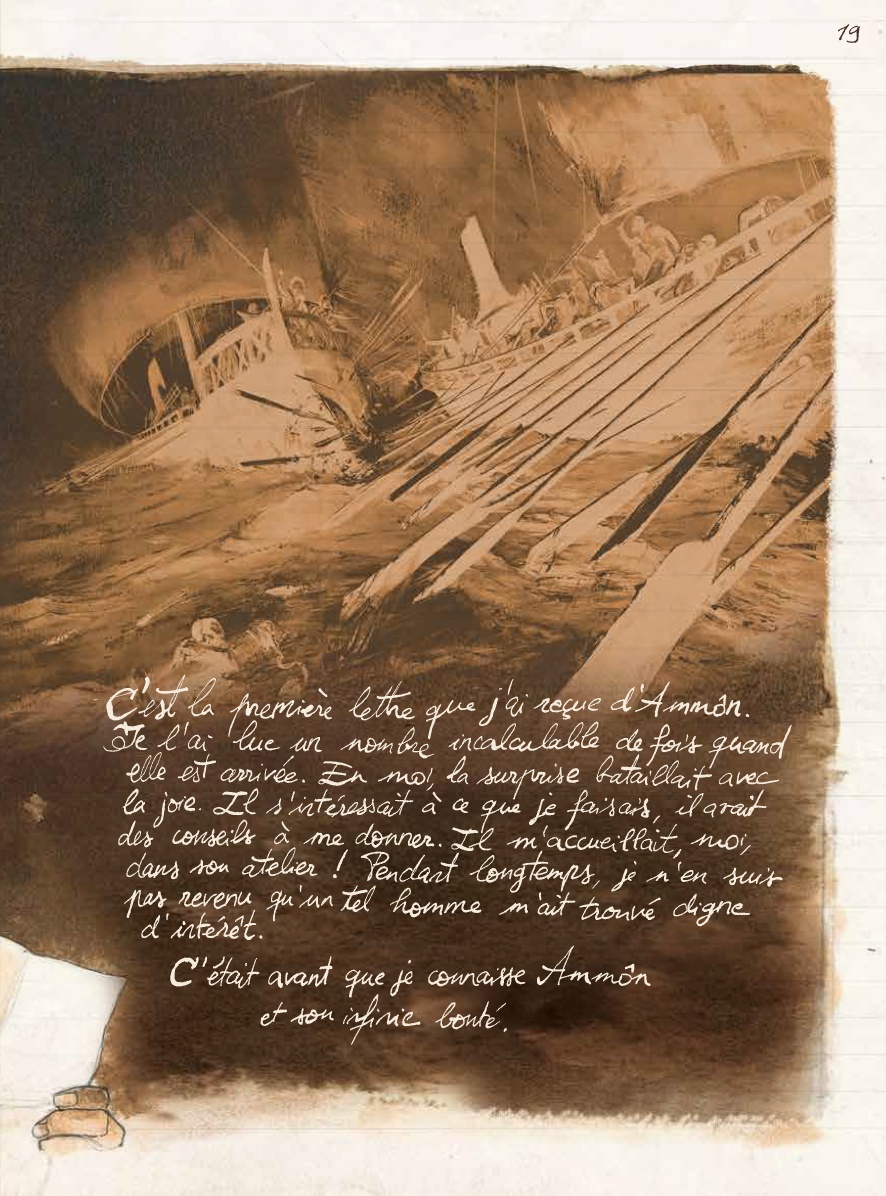 19
C'est la première lettre que j'ai reçue d'Ammôn.
Je l'ai lue un nombre incalculable de fois quand
elle est arrivée. En moi, la surprise bataillait avec
la joie. Il s'intéressait à ce que je faisais, il avait
des conseils à me donner. Il m'accueillait, moi,
dans son atelier ! Pendant longtemps, je n'en suis
pas revenu qu'un tel homme m'ait trouvé digne
d'intérêt.
C'était avant que je connaisse Ammôn
et son infinie bonté.